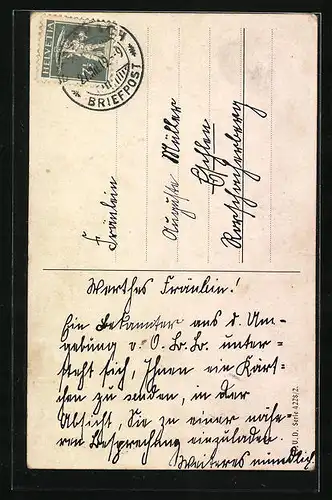 HELVETIA
BRIEFPOST
Fräulein
Auguste Müller
Eschlen
Rorschacherberg
Werthes Fräulein!
Ein Bekannter aus d. Um-
gebung v. O. Br. Br. unter-
steht sich, Ihnen ein Kärt-
chen zu senden, in der
Absicht, Sie zu einer nähe-
ren Besprechung einzuladen.
Weiteres mündlich
U. D. Serie 4228/2.